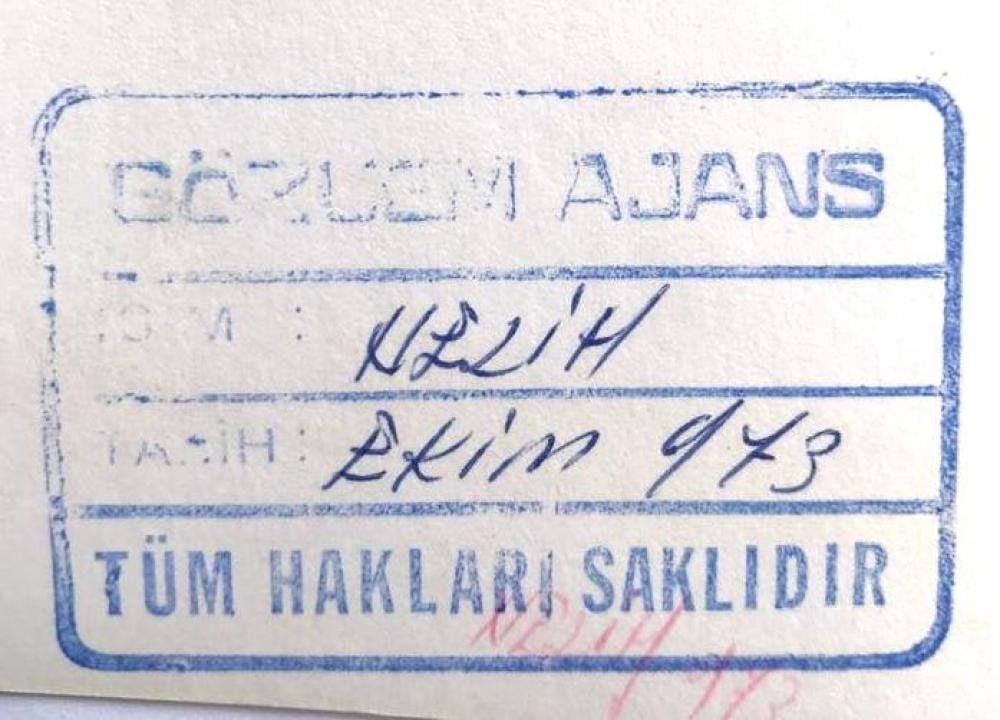 GÖZLEM AJANS
İSİM : NEZİH
TARİH : EKİM 973
TÜM HAKLARI SAKLIDIR
NEZİH 973